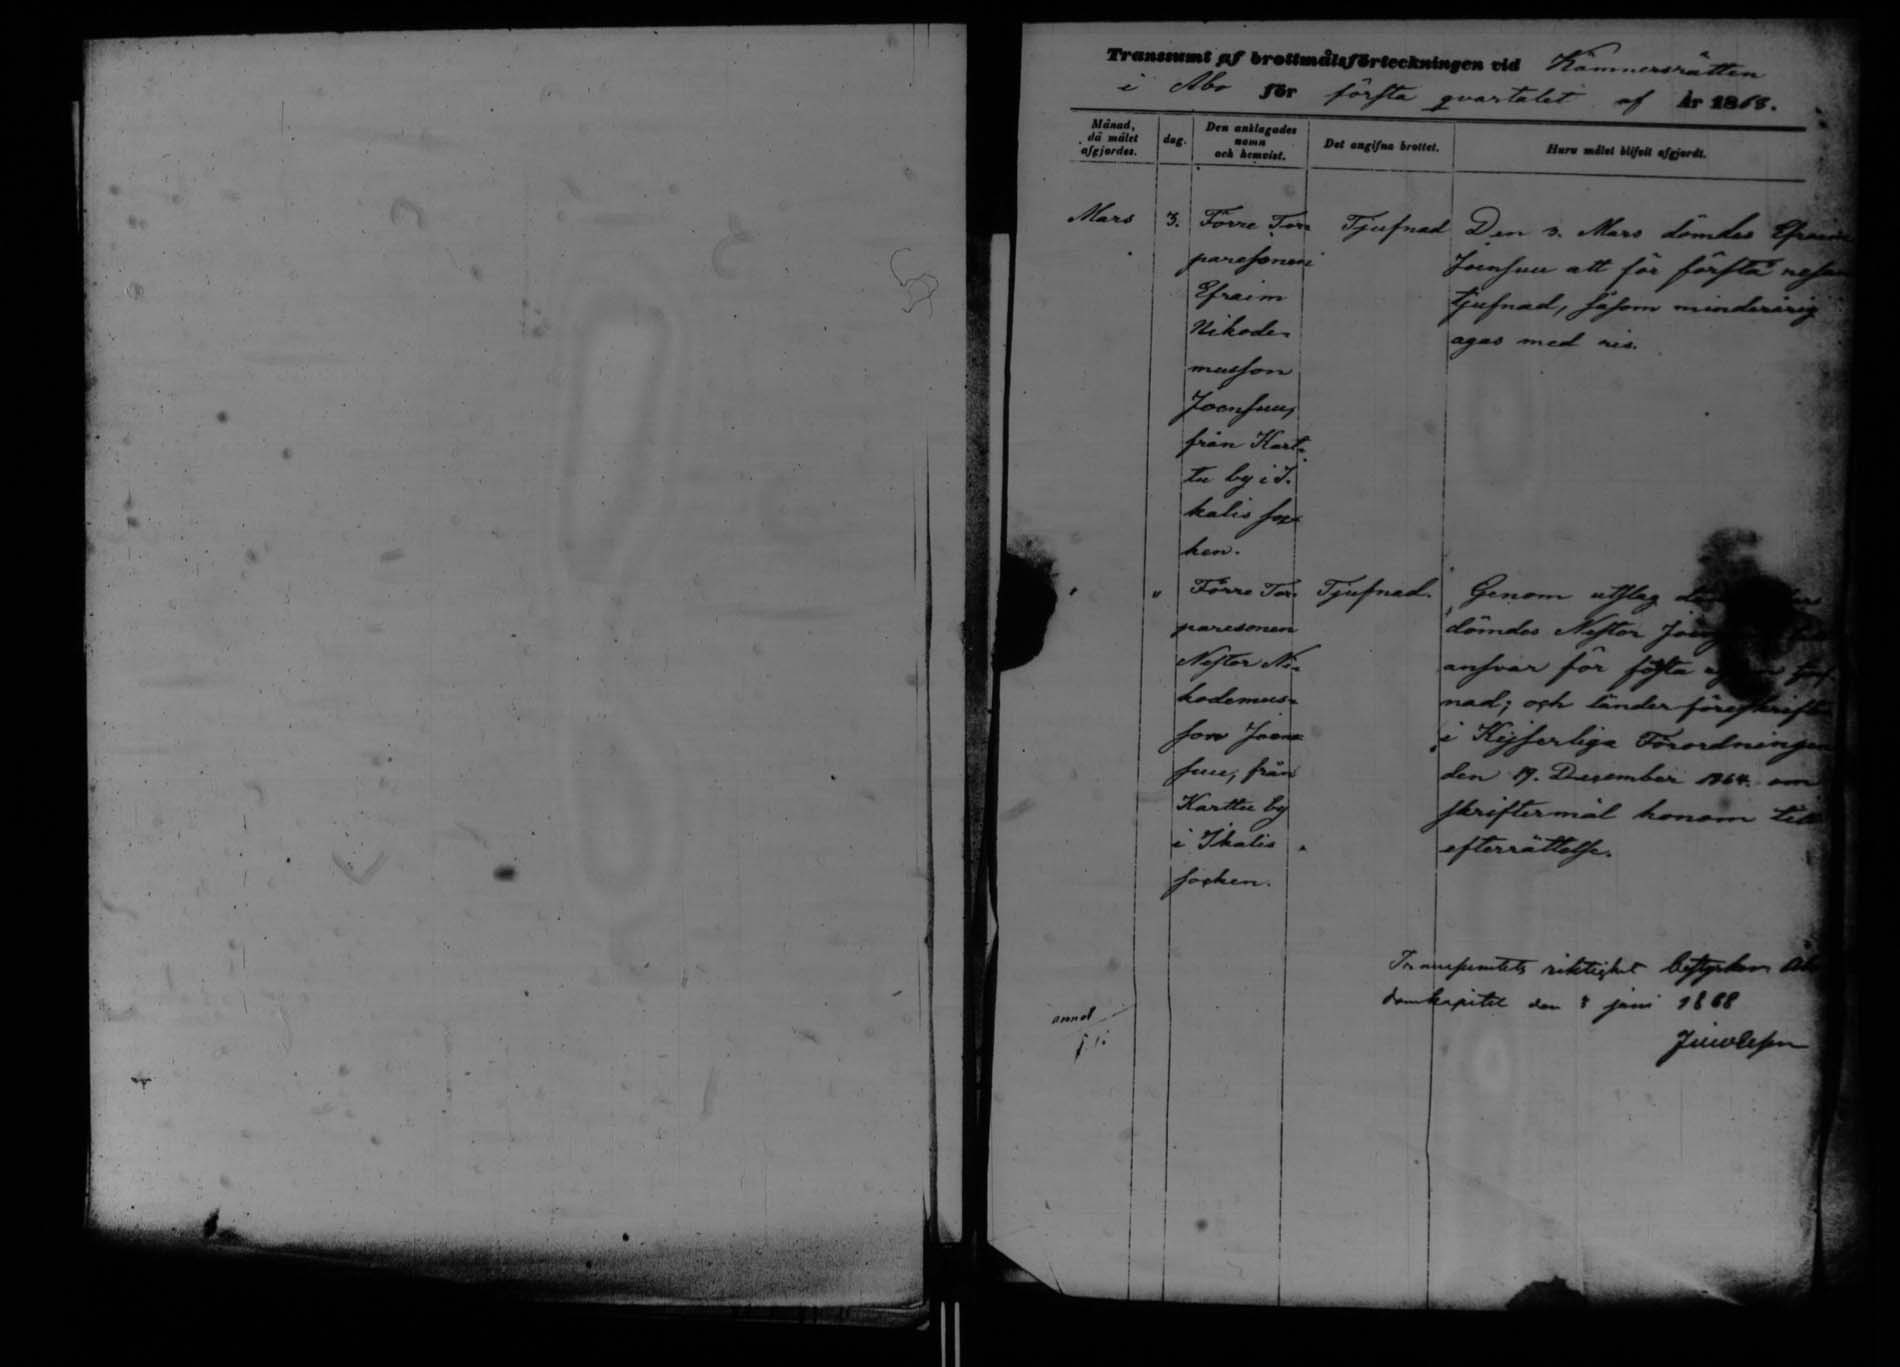 Transsumt af brottmålsförteckningen vid Kämnersrätten
i Åbo för första qvartalet af År 1868.
Månad, då målet afgjordes.
dag.
Den anklagades namn och hemvist.
Det angifna brottet.
Huru målet blifvit afgjordt.
Mars 3. Förre Tor- Tjufnad Den 3. Mars dömdes Efraim
paresonen Joensuu att för första resan
Efraim tjufnad, såsom minderårig
Nikode- agas med ris.
musson
Joensuu,
från Kart-
tu by i I-
kalis soc-
ken.
" " Förre Tor- Tjufnad. Genom utslag
paresonen dömdes Nestor
Nestor Ni- ansvar för första
kodemus- nad; och länder föreskriften
son Joen- i Kejserliga Förordningen
suu, från den 19. December 1864 om
Karttu by skriftermål honom till
i Ikalis efterrättelse.
socken.
Transsumtets riktighet bestyrker. Åbo
domkapitel den 8 juni 1868